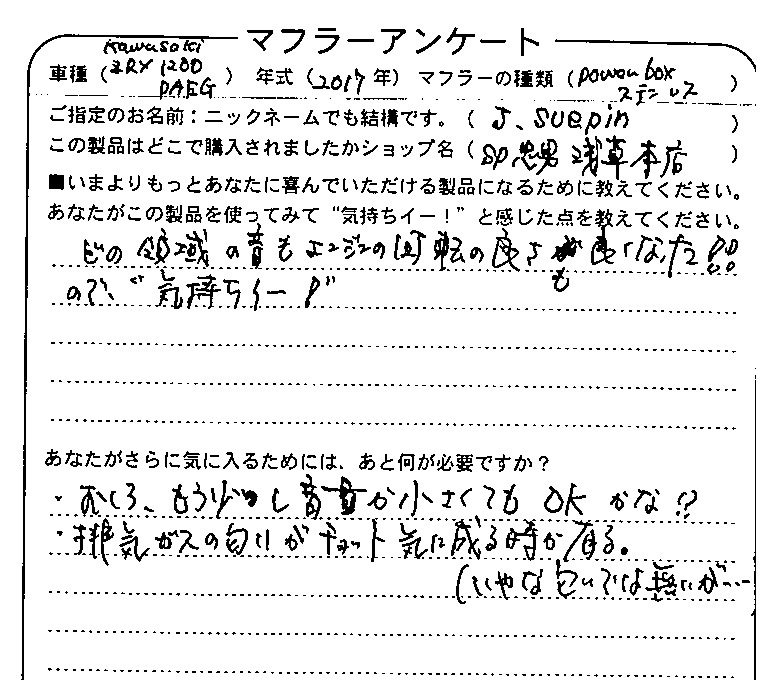 マフラーアンケート
車種（Kawasaki ZRX1200 DAEG） 年式（2017年） マフラーの種類（power box ステンレス）
ご指定のお名前：ニックネームでも結構です。（J. suepin）
この製品はどこで購入されましたかショップ名（SP忠男 浅草本店）
■いまよりもっとあなたに喜んでいただける製品になるために教えてください。
あなたがこの製品を使ってみて“気持ちイー！”と感じた点を教えてください。
どの領域の音もエンジンの回転の良さも良くなった!!
ので、“気持ちイー!”
あなたがさらに気に入るためには、あと何が必要ですか？
・むしろ、もう少し音量が小さくてもOKかな!?
・排気ガスの匂いがチョット気に成る時が有る。
（いやな匂いでは無いが……